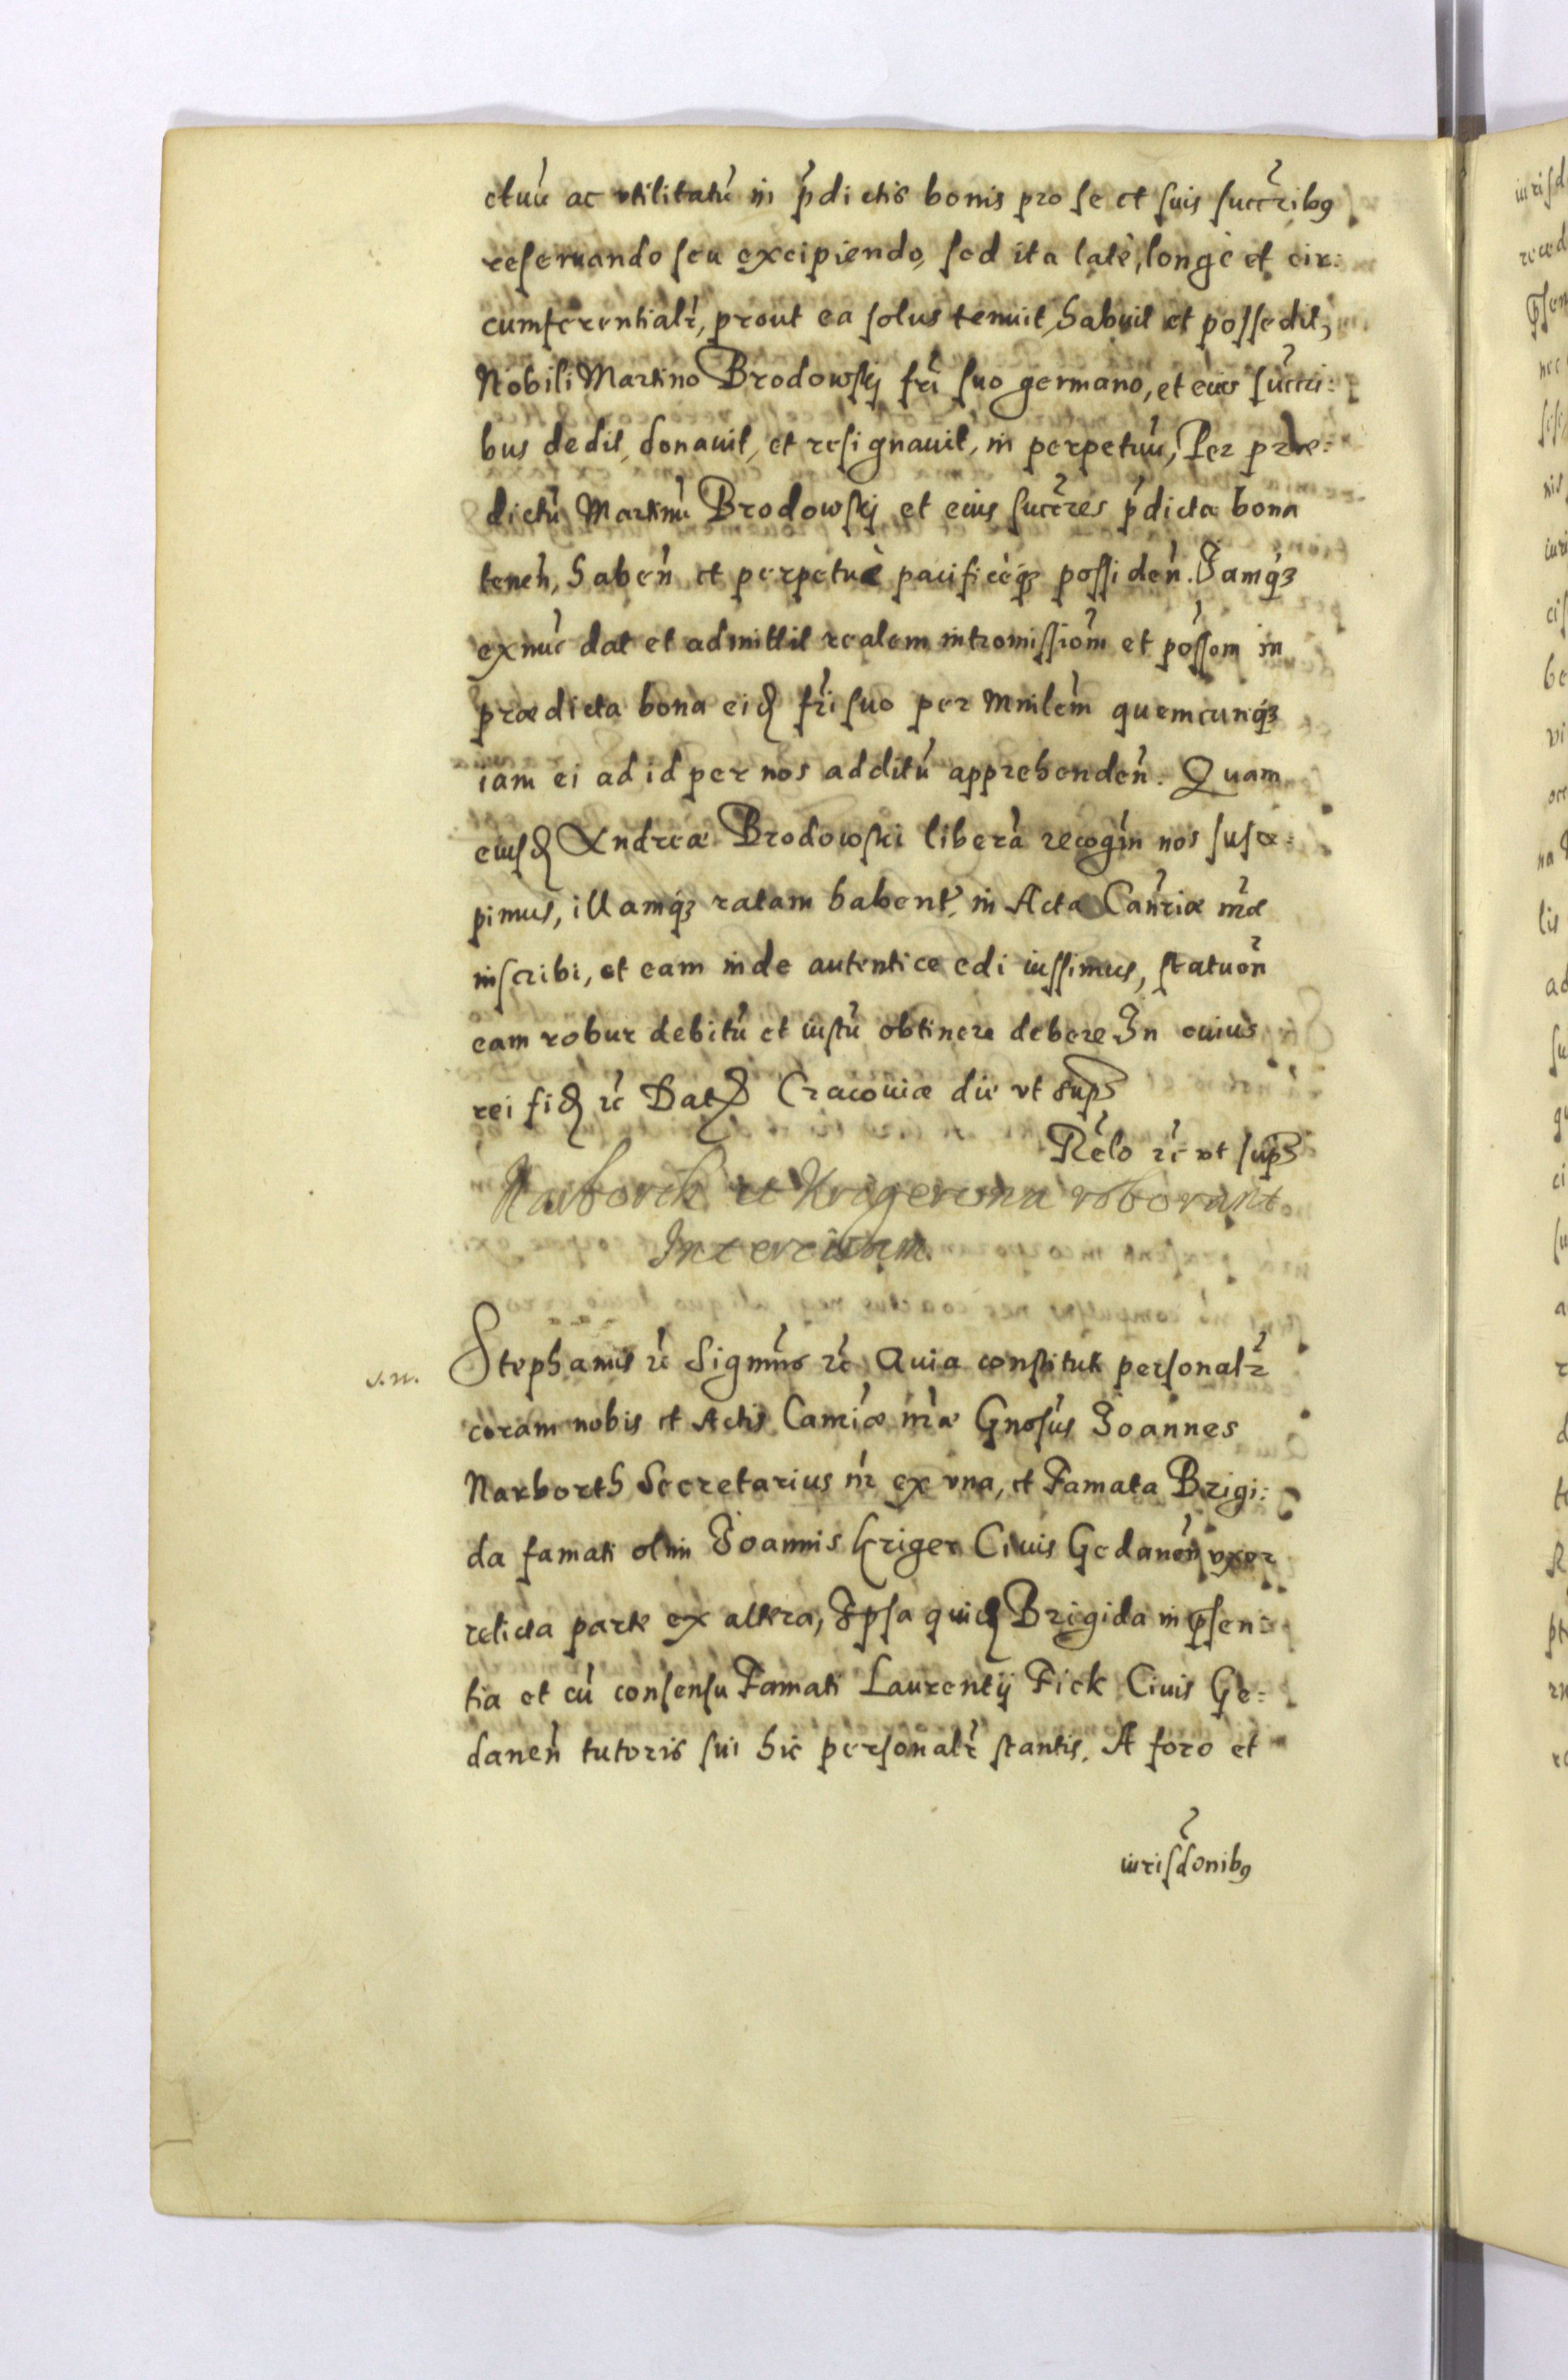 ctuū ac vtilitatū in p̄dictis bonis pro se et suis succr̄ibꝯ
reseruando seu excipiendo, sed ita latè, longè et cir:
cumferentialr̄, prout ea solus tenuit, habuit et possedit,
Nobili Martino Brodowskj fr̄i suo germano, et eius succr̄i:
bus dedit, donauit, et resignauit, in perpetuū, Per prae:
dictū Martinū Brodowskj et eius succr̄es p̄dicta bona
tenen̄, haben̄ et perpetuè pacificèq́ꝫ possiden̄. Jamq́ꝫ
ex nūc dat et admittit realem intromissiom̄ et poss̄om in
praedicta bona eidꝫ fr̄i suo per Mnilem̄ quemcunq́ꝫ
iam ei ad id per nos additū apprehenden̄. Quam
eiusdꝫ Andreae Brodowski liberā recogn̄ nos susce:
pimus, illamq́ꝫ ratam habent̄. in Acta Canr̄iae nr̄ae
inscribi, et eam inde autentice edi iussimus, statuen̄
eam robur debitū et iustū obtinere debere Jn cuius
rei fidꝫ rc̄ Datꝫ Cracouiae die vt supꝫ
Rel̄o rc̄ vt supꝫ
Narborth et Krigerowa roborant
Intercisam.
Stephanus rc̄ Signm̄us rc̄ Quia constituti personalr̄
v.n.
coram nobis et Actis Canr̄iae nr̄ae Gnosūs Joannes
Narborth Secretarius nr̄ ex vna, et Famata Brigi:
da famati olim Joannis Kriger Ciuis Gedanen̄ vxor
relicta parte ex altera, Jpsa quidꝫ Brigida in p̄sen:
tia et cū consensu Famati Laurentij Fick Ciuis Ge:
danen̄ tutoris sui hic personalr̄ stantis. A foro et
iurisd̄onibꝯ